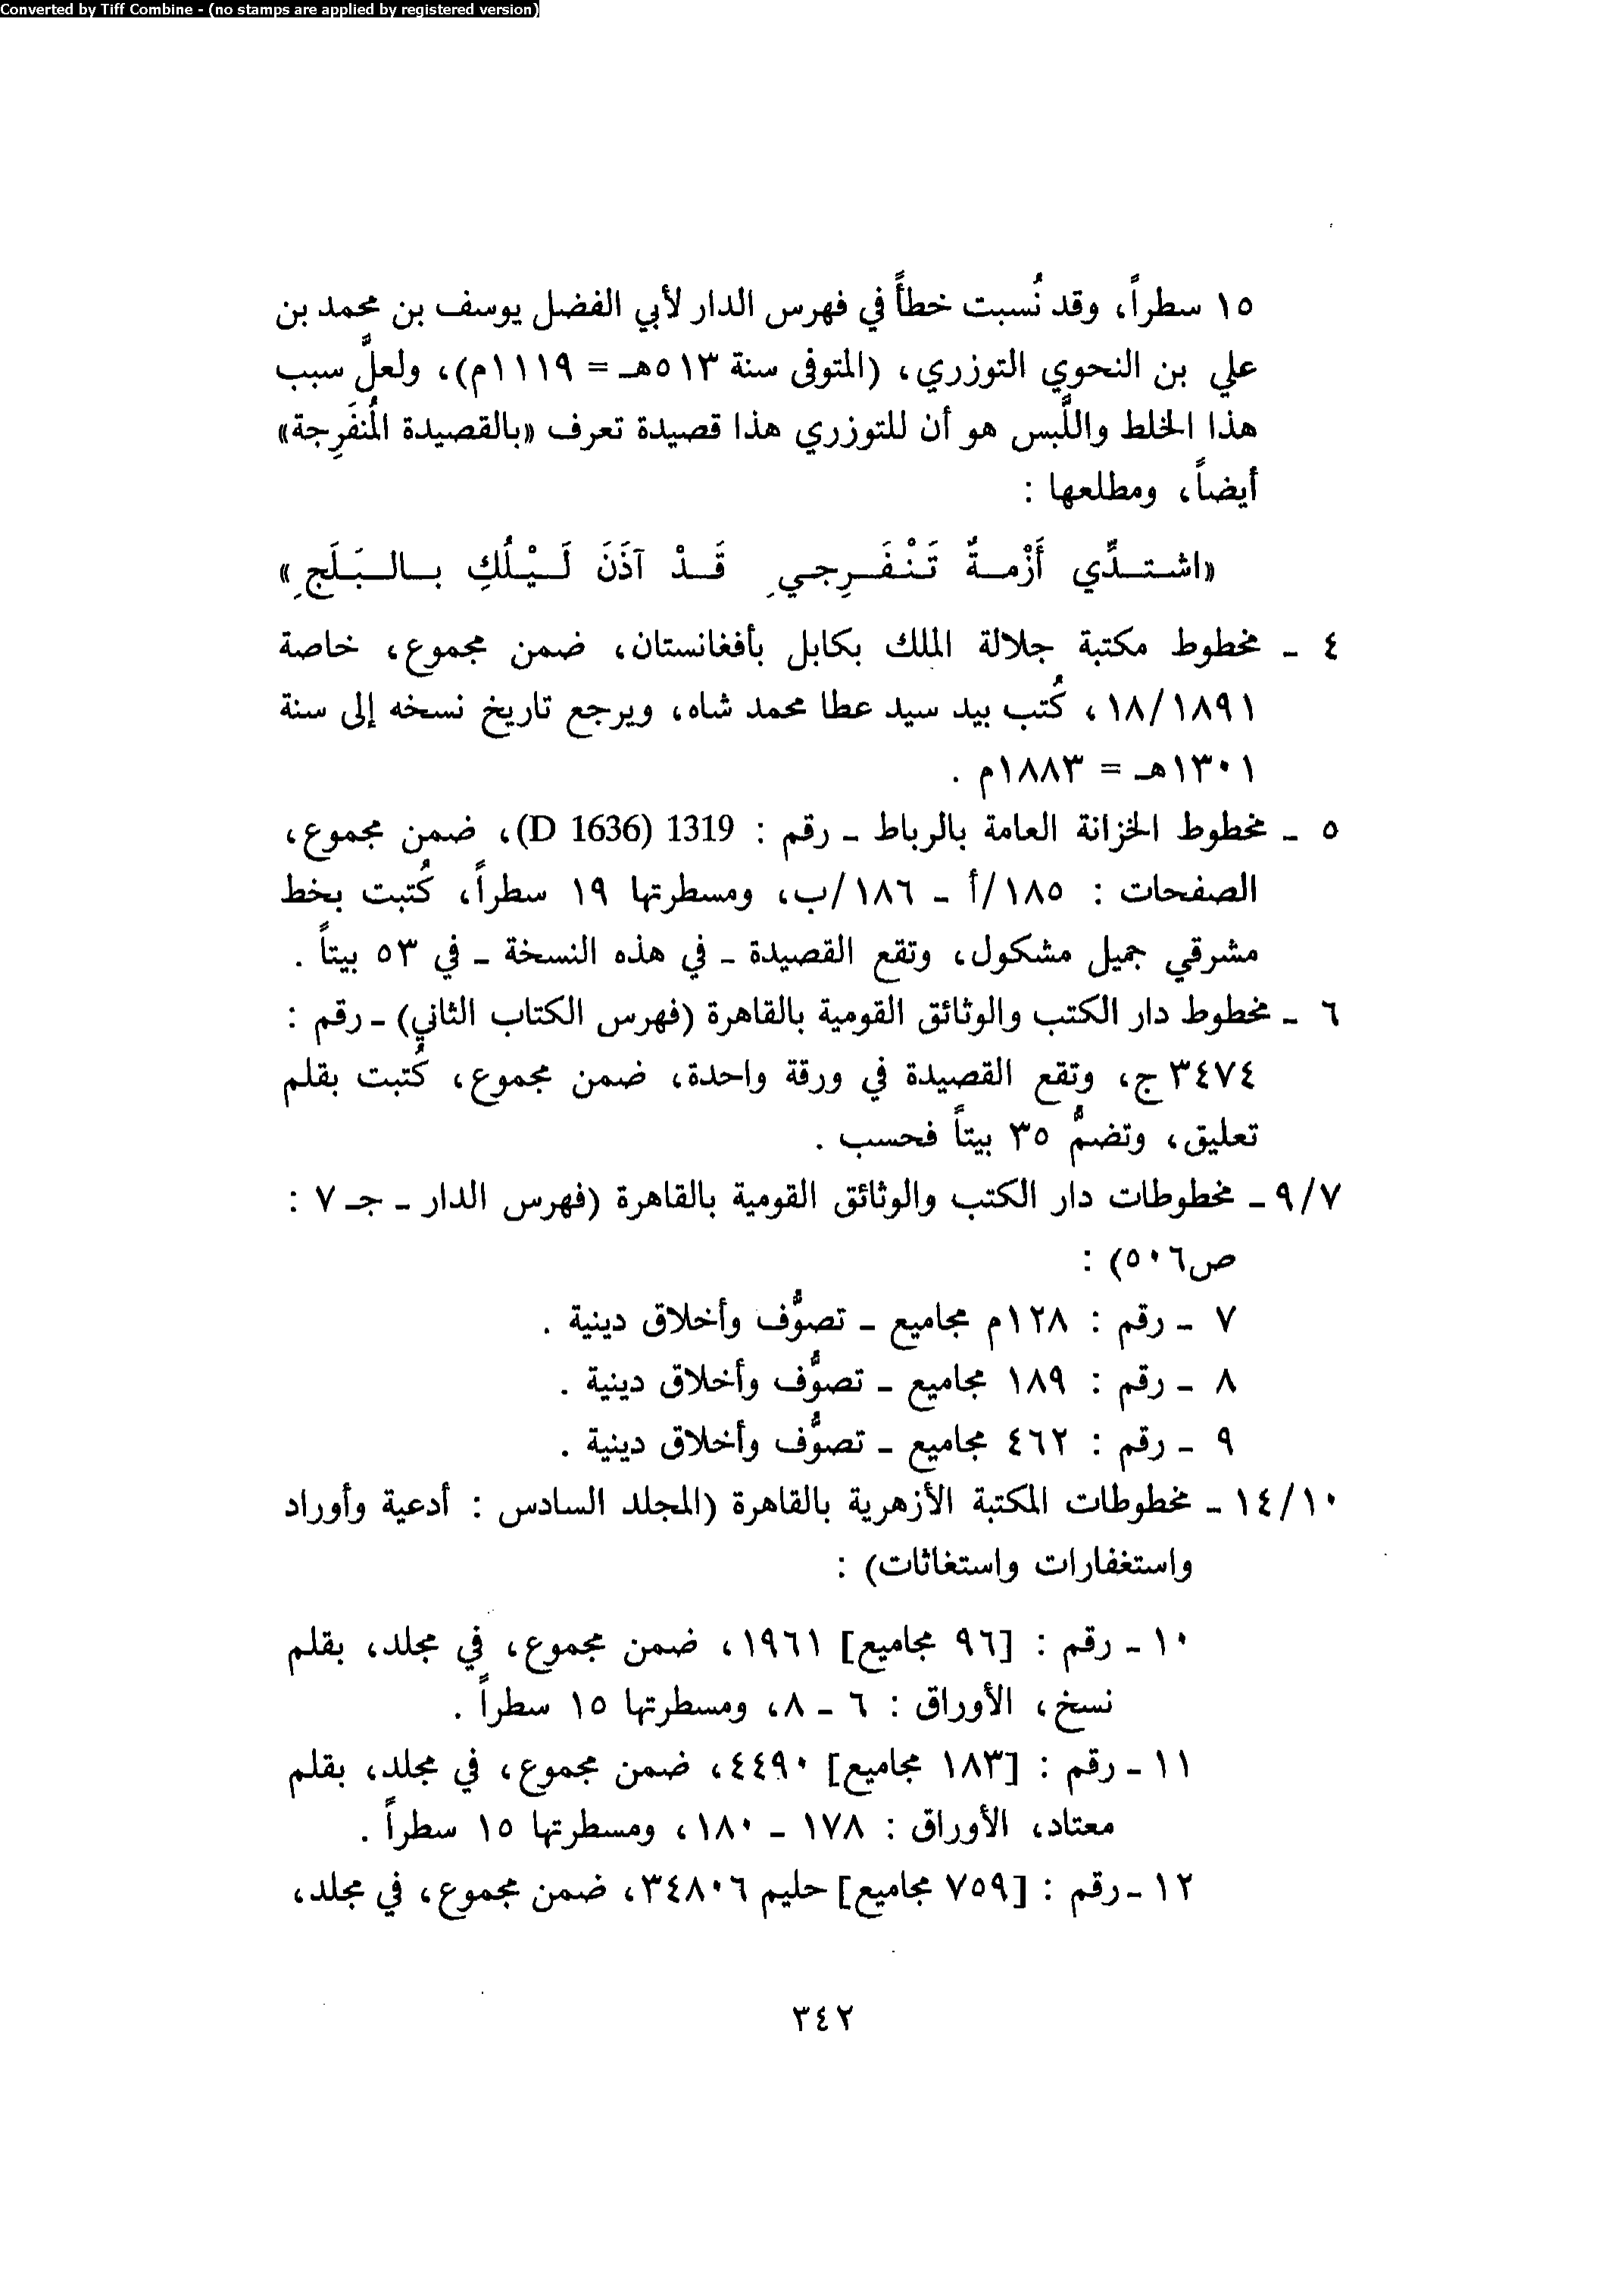 Converted by Tiff Combine - (no stamps are applied by registered version)
١٥ سطراً، وقد نُسبت خطأً في فهرس الدار لأبي الفضل يوسف بن محمد بن
علي بن النحوي التوزري، (المتوفى سنة ٥١٣هـ = ١١١٩م)، ولعلَّ سبب
هذا الخلط واللَّبس هو أن للتوزري هذا قصيدة تعرف «بالقصيدة المُنفَرِجة»
أيضاً، ومطلعها :
«اشتـدِّي أَزْمـةٌ تَـنْـفَـرِجـي قَـدْ آذَنَ لَـيْـلُكِ بـالـبَـلَجِ»
٤ ـ مخطوط مكتبة جلالة الملك بكابل بأفغانستان، ضمن مجموع، خاصة
١٨/١٨٩١، كُتب بيد سيد عطا محمد شاه، ويرجع تاريخ نسخه إلى سنة
١٣٠١هـ = ١٨٨٣م .
٥ ـ مخطوط الخزانة العامة بالرباط ـ رقم : 1319 (D 1636)، ضمن مجموع،
الصفحات : ١٨٥/أ ـ ١٨٦/ب، ومسطرتها ١٩ سطراً، كُتبت بخط
مشرقي جميل مشكول، وتقع القصيدة ـ في هذه النسخة ـ في ٥٣ بيتاً .
٦ ـ مخطوط دار الكتب والوثائق القومية بالقاهرة (فهرس الكتاب الثاني) ـ رقم :
٣٤٧٤ ج، وتقع القصيدة في ورقة واحدة، ضمن مجموع، كُتبت بقلم
تعليق، وتضمُّ ٣٥ بيتاً فحسب .
٩/٧ ـ مخطوطات دار الكتب والوثائق القومية بالقاهرة (فهرس الدار ـ جـ ٧ :
ص٥٠٦) :
٧ ـ رقم : ١٢٨م مجاميع ـ تصوُّف وأخلاق دينية .
٨ ـ رقم : ١٨٩ مجاميع ـ تصوُّف وأخلاق دينية .
٩ ـ رقم : ٤٦٢ مجاميع ـ تصوُّف وأخلاق دينية .
١٤/١٠ ـ مخطوطات المكتبة الأزهرية بالقاهرة (المجلد السادس : أدعية وأوراد
واستغفارات واستغاثات) :
١٠ ـ رقم : [٩٦ مجاميع] ١٩٦١، ضمن مجموع، في مجلد، بقلم
نسخ، الأوراق : ٦ ـ ٨، ومسطرتها ١٥ سطراً .
١١ ـ رقم : [١٨٣ مجاميع] ٤٤٩٠، ضمن مجموع، في مجلد، بقلم
معتاد، الأوراق : ١٧٨ ـ ١٨٠، ومسطرتها ١٥ سطراً .
١٢ ـ رقم : [٧٥٩ مجاميع] حليم ٣٤٨٠٦، ضمن مجموع، في مجلد،
٣٤٢